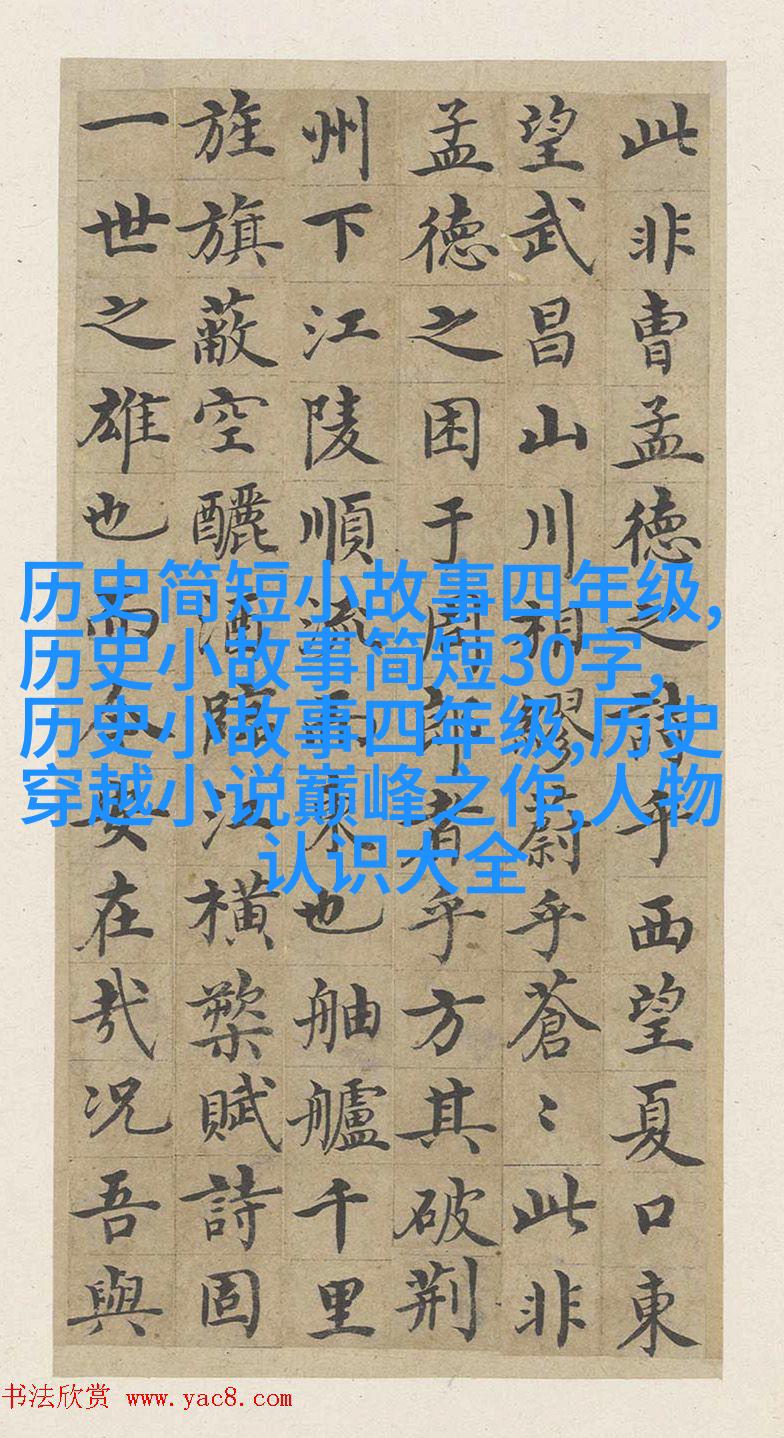 此非曹孟德之詩乎西望夏口東
望武昌山川相繆蔚乎蒼〻此非
孟德之困于周郎者乎方其破荊
州下江陵順流而東也舳艫千里
旌旗蔽空釃酒臨江橫槊賦詩固
一世之雄也而今安在哉况吾與
历史简短小故事四年级,
历史小故事简短30字,
历史小故事四年级,历史
穿越小说巅峰之作,人物
认识大全
书法欣赏 www.yac8.com